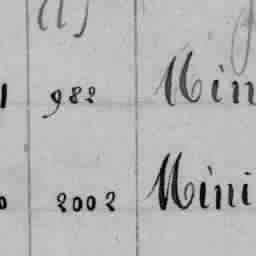 (1)
1 982 Min
0 2002 Mini